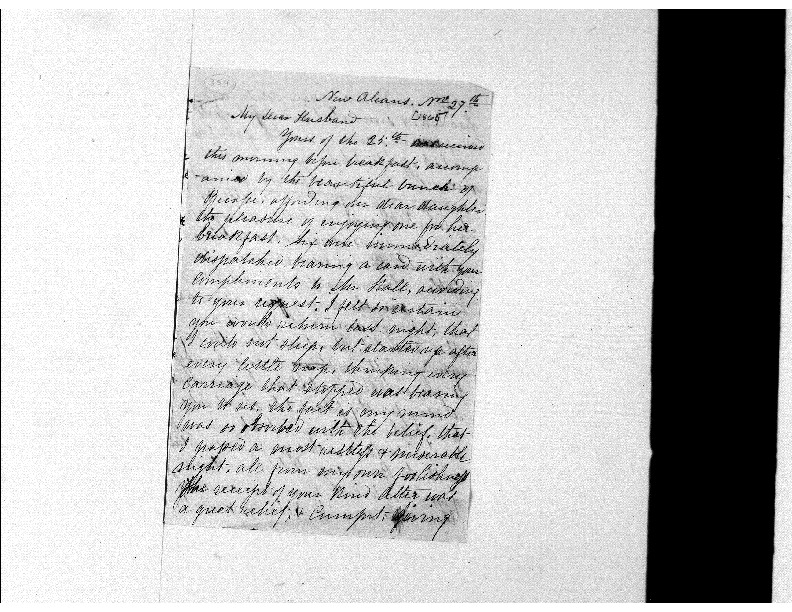 New Orleans. Nov 27th
[1848]
My dear Husband
Yours of the 25.th was received
this morning before breakfast, accomp
-anied by the beautiful bunch of
affording our dear daughter
the pleasure of enjoying one for her
breakfast. Six were immediately
dispatched bearing a card with your
compliments to Mr Hall, according
to your request. I felt so certain
you would return last night, that
I could not sleep, but started up after
every little nap, thinking every
carriage that stopped was bearing
you to us. The fact is my mind
was so absorbed with the belief, that
I passed a most restless & miserable
night, all from my own foolishness
The receipt of your kind letter was
a great relief, & comfort, giving